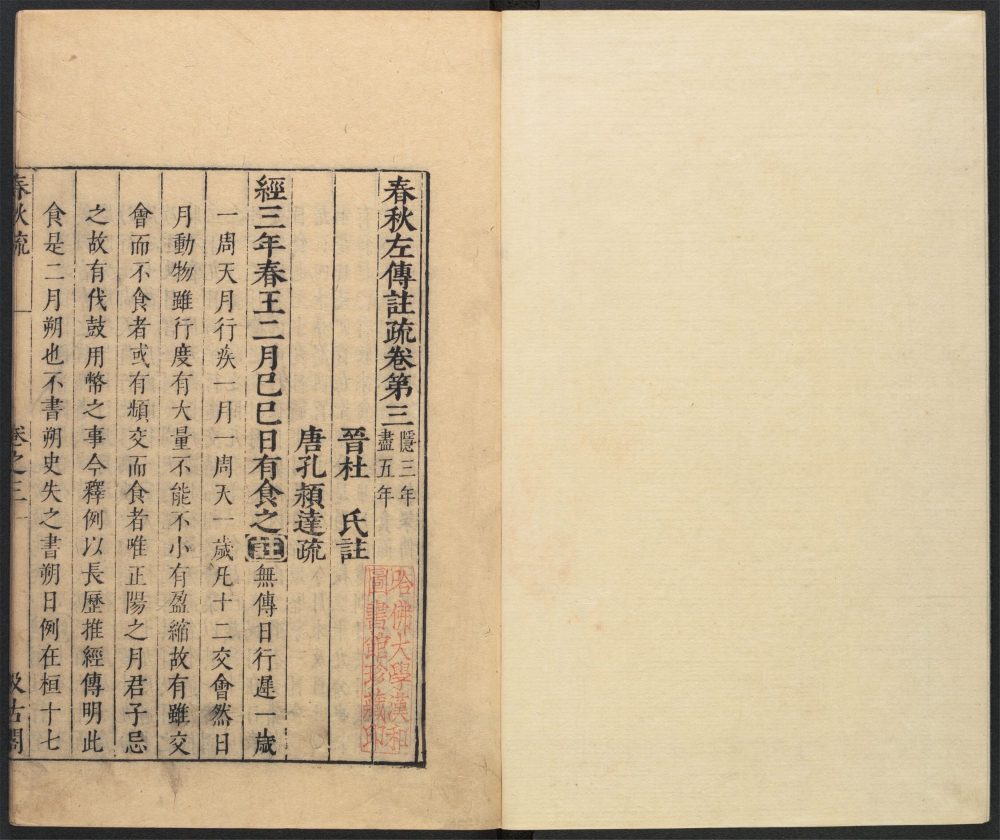 春秋左傳註疏卷第三
隱三年
盡五年
晉杜　氏註
唐孔穎達疏
經三年春王二月己巳日有食之註無傳日行遲一歲
一周天月行疾一月一周天一歲凡十二交會然日
月動物雖行度有大量不能不小有盈縮故有雖交
會而不食者或有頻交而食者唯正陽之月君子忌
之故有伐鼓用幣之事今釋例以長歷推經傳明此
食是二月朔也不書朔史失之書朔日例在桓十七
春秋疏
卷之三
一
汲古閣
哈佛大學漢和
圖書館珍藏印